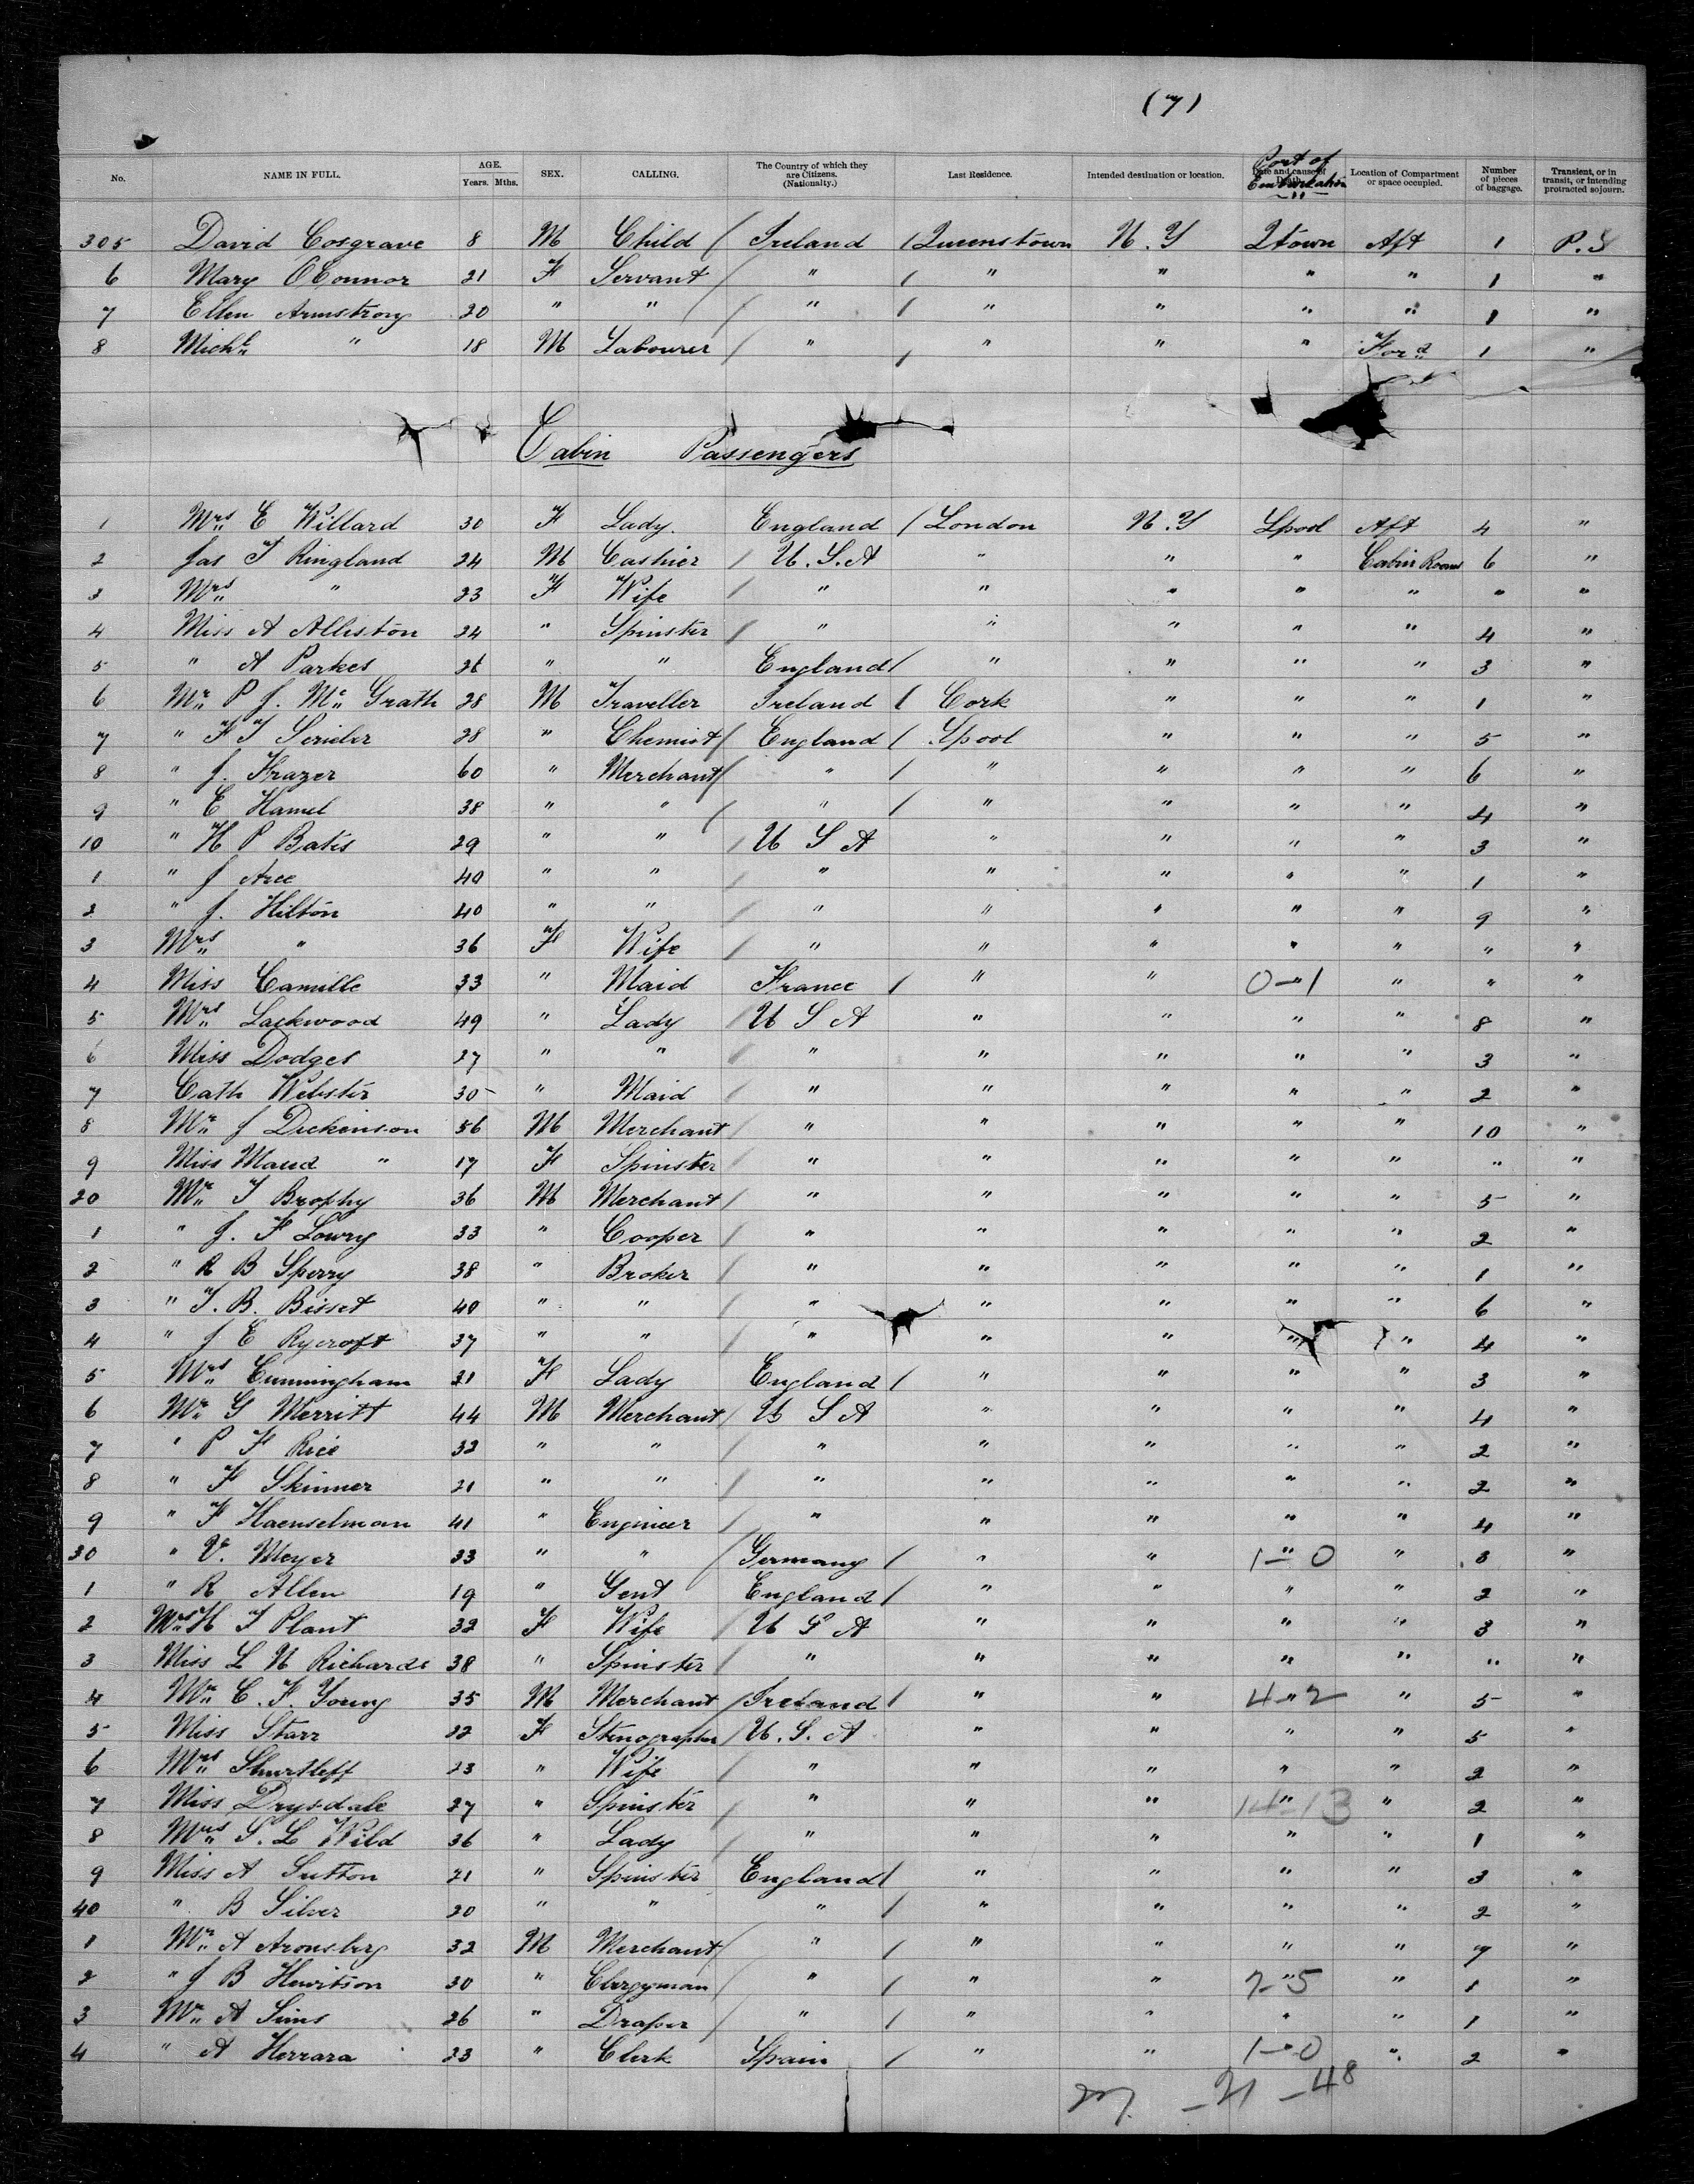 (7)
No. NAME IN FULL. AGE. Years. Mths. SEX. CALLING. The Country of which they are Citizens. (Nationalty.) Last Residence. Intended destination or location. Date and cause of Death. Port of Embarkation Location of Compartment or space occupied. Number of pieces of baggage. Transient, or in transit, or intending protracted sojourn.
305 David Cosgrave 8 M Child Ireland Queenstown N.Y Qtown Aft 1 P.S
6 Mary O'Connor 21 F Servant " " " " " 1 "
7 Ellen Armstrong 20 " " " " " " " 1 "
8 Michl " 18 M Labourer " " " " Ford 1 "
Cabin Passengers
1 Mrs E Willard 30 F Lady. England London N.Y Lpool Aft 4 "
2 Jas T Ringland 24 M Cashier U.S.A " " " Cabin Rooms 6 "
3 Mrs " 23 F Wife " " " " " " "
4 Miss A Alliston 24 " Spinster " " " " " 4 "
5 " A Parkes 26 " " England " " " " 3 "
6 Mr P J. Mc Grath 28 M Traveller Ireland Cork " " " 1 "
7 " F T 28 " Chemist England Lpool " " " 5 "
8 " J. Frazer 60 " Merchant " " " " " 6 "
9 " E Hamel 38 " " " " " " " 4 "
10 " H P Bates 29 " " U S A " " " " 3 "
1 " J 40 " " " " " " " 1 "
2 " J. Hilton 40 " " " " " " " 9 "
3 Mrs " 36 F Wife " " " " " " "
4 Miss Camille 33 " Maid France " " 0-"-1 " " "
5 Mrs Lackwood 49 " Lady U S A " " " " 8 "
6 Miss Dodges 27 " " " " " " " 3 "
7 Cath Webster 30 " Maid " " " " " 2 "
8 Mr J Dickinson 56 M Merchant " " " " " 10 "
9 Miss Maud " 17 F Spinster " " " " " " "
20 Mr T Brophy 36 M Merchant " " " " " 5 "
1 " J. F Lowry 33 " Cooper " " " " " 2 "
2 " R B Sperry 38 " Broker " " " " " 1 "
3 " T. B. Bisset 40 " " " " " " " 6 "
4 " J E Rycroft 37 " " " " " " " 4 "
5 Mrs Cunningham 21 F Lady England " " " " 3 "
6 Mr G Merritt 44 M Merchant U S A " " " " 4 "
7 " P F Rice 32 " " " " " " " 2 "
8 " F Skinner 21 " " " " " " " 2 "
9 " F Haenselman 41 " Engineer " " " " " 4 "
30 " V. Meyer 33 " " Germany " " 1-"-0 " 3 "
1 " R Allen 19 " Gent England " " " " 2 "
2 Mrs H T Plant 32 F Wife U S A " " " " 3 "
3 Miss L N Richards 38 " Spinster " " " " " " "
4 Mr C. F. Young 35 M Merchant Ireland " " 4-"-2 " 5 "
5 Miss Starr 22 F Stenographer U.S.A " " " " 5 "
6 Mrs Shurtleff 23 " Wife " " " " " 2 "
7 Miss Drysdale 27 " Spinster " " " 14-"-13 " 2 "
8 Mrs S. L Wild 36 " Lady " " " " " 1 "
9 Miss A Sutton 21 " Spinster England " " " " 3 "
40 " B Silver 20 " " " " " " " 2 "
1 Mr A Aronsberg 32 M Merchant " " " " " 7 "
2 " J B Hewitson 30 " Clergyman " " " 7-"-5 " 1 "
3 Mr A Sims 26 " Draper " " " " " 1 "
4 " A Herrara 23 " Clerk Spain " " 1-"-0 " 2 "
27. - 21 - 48